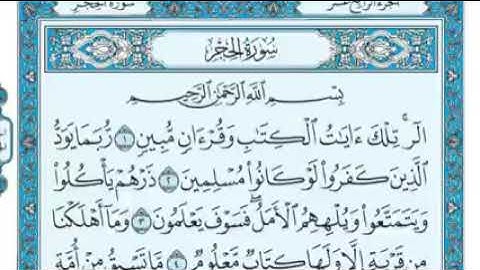 سُورَةُ الحِجْرِ الجُزْءُ الرَّابِعَ عَشَرَ
سُورَةُ الحِجْرِ
بِسْمِ اللَّهِ الرَّحْمَٰنِ الرَّحِيمِ
الٓرۚ تِلْكَ ءَايَٰتُ ٱلْكِتَٰبِ وَقُرْءَانٍ مُّبِينٍ ١ رُّبَمَا يَوَدُّ
ٱلَّذِينَ كَفَرُواْ لَوْ كَانُواْ مُسْلِمِينَ ٢ ذَرْهُمْ يَأْكُلُواْ
وَيَتَمَتَّعُواْ وَيُلْهِهِمُ ٱلْأَمَلُۖ فَسَوْفَ يَعْلَمُونَ ٣ وَمَآ أَهْلَكْنَا
مِن قَرْيَةٍ إِلَّا وَلَهَا كِتَابٌ مَّعْلُومٌ ٤ مَّا تَسْبِقُ مِنْ أُمَّةٍ